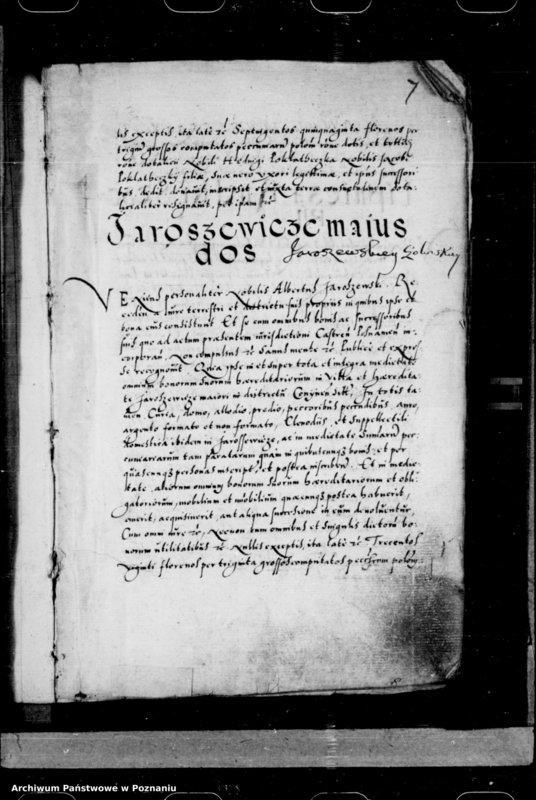 7
lis exceptis, ita late etc. Septingentos quinquaginta florenos per
triginta grossos computatos pecuniarum polon. rōne dotis, et
rōne dotalicii Nobili Hedvigi Nobilis Jacobi
filiæ, suæ vero uxori legittimæ, et ipsius successori
bus, dedit donavit, inscripsit et iuxta terræ consuetudinem dota
resignavit, per ipsam
Jaroszewicze maius
dos Jaroszewskiey
VEniens personaliter Nobilis Albertus Jaroszewski. Re
cedens a iure terrestri et districtu suis propriis in quibus ipse et
bona eius consistunt Et se cum omnibus bonis ac successoribus
suis quo ad actum præsentem iurisdictioni Castren. Posnanien. in
corporans, Non compulsus etc. Sanus mente etc. Publice et expres
se recognovit. Quia ipse in et super tota et integra medietate
omnium bonorum suorum hæreditariorum in Villa et hæredita
te Jaroszewicze maiori in districtu In totis ta
men Curia, domo, allodio, prædio, pecoribus pecudibus, auro,
argento formato et non formato, Clenodiis, et suppellectili
domestica ibidem in Jaroszewicze, ac in medietate summarum pec
cuniarum tam paratarum quam in quibuscunque bonis: et per
quascunque personas inscript. et postea inscribend. Et in medie
tate aliorum omnium bonorum suorum hæreditariorum et obli
gatoriorum, mobilium et immobilium quæcunque postea habuerit,
emerit, acquisiverit, aut aliqua successione in eum devolventur,
Cum omni iure etc., Necnon cum omnibus et singulis dictorum bo
norum utilitatibus etc. Nullis exceptis, ita late etc. Trecentos
viginti florenos per triginta grossos computatos pecuniarum polon:
Archiwum Państwowe w Poznaniu